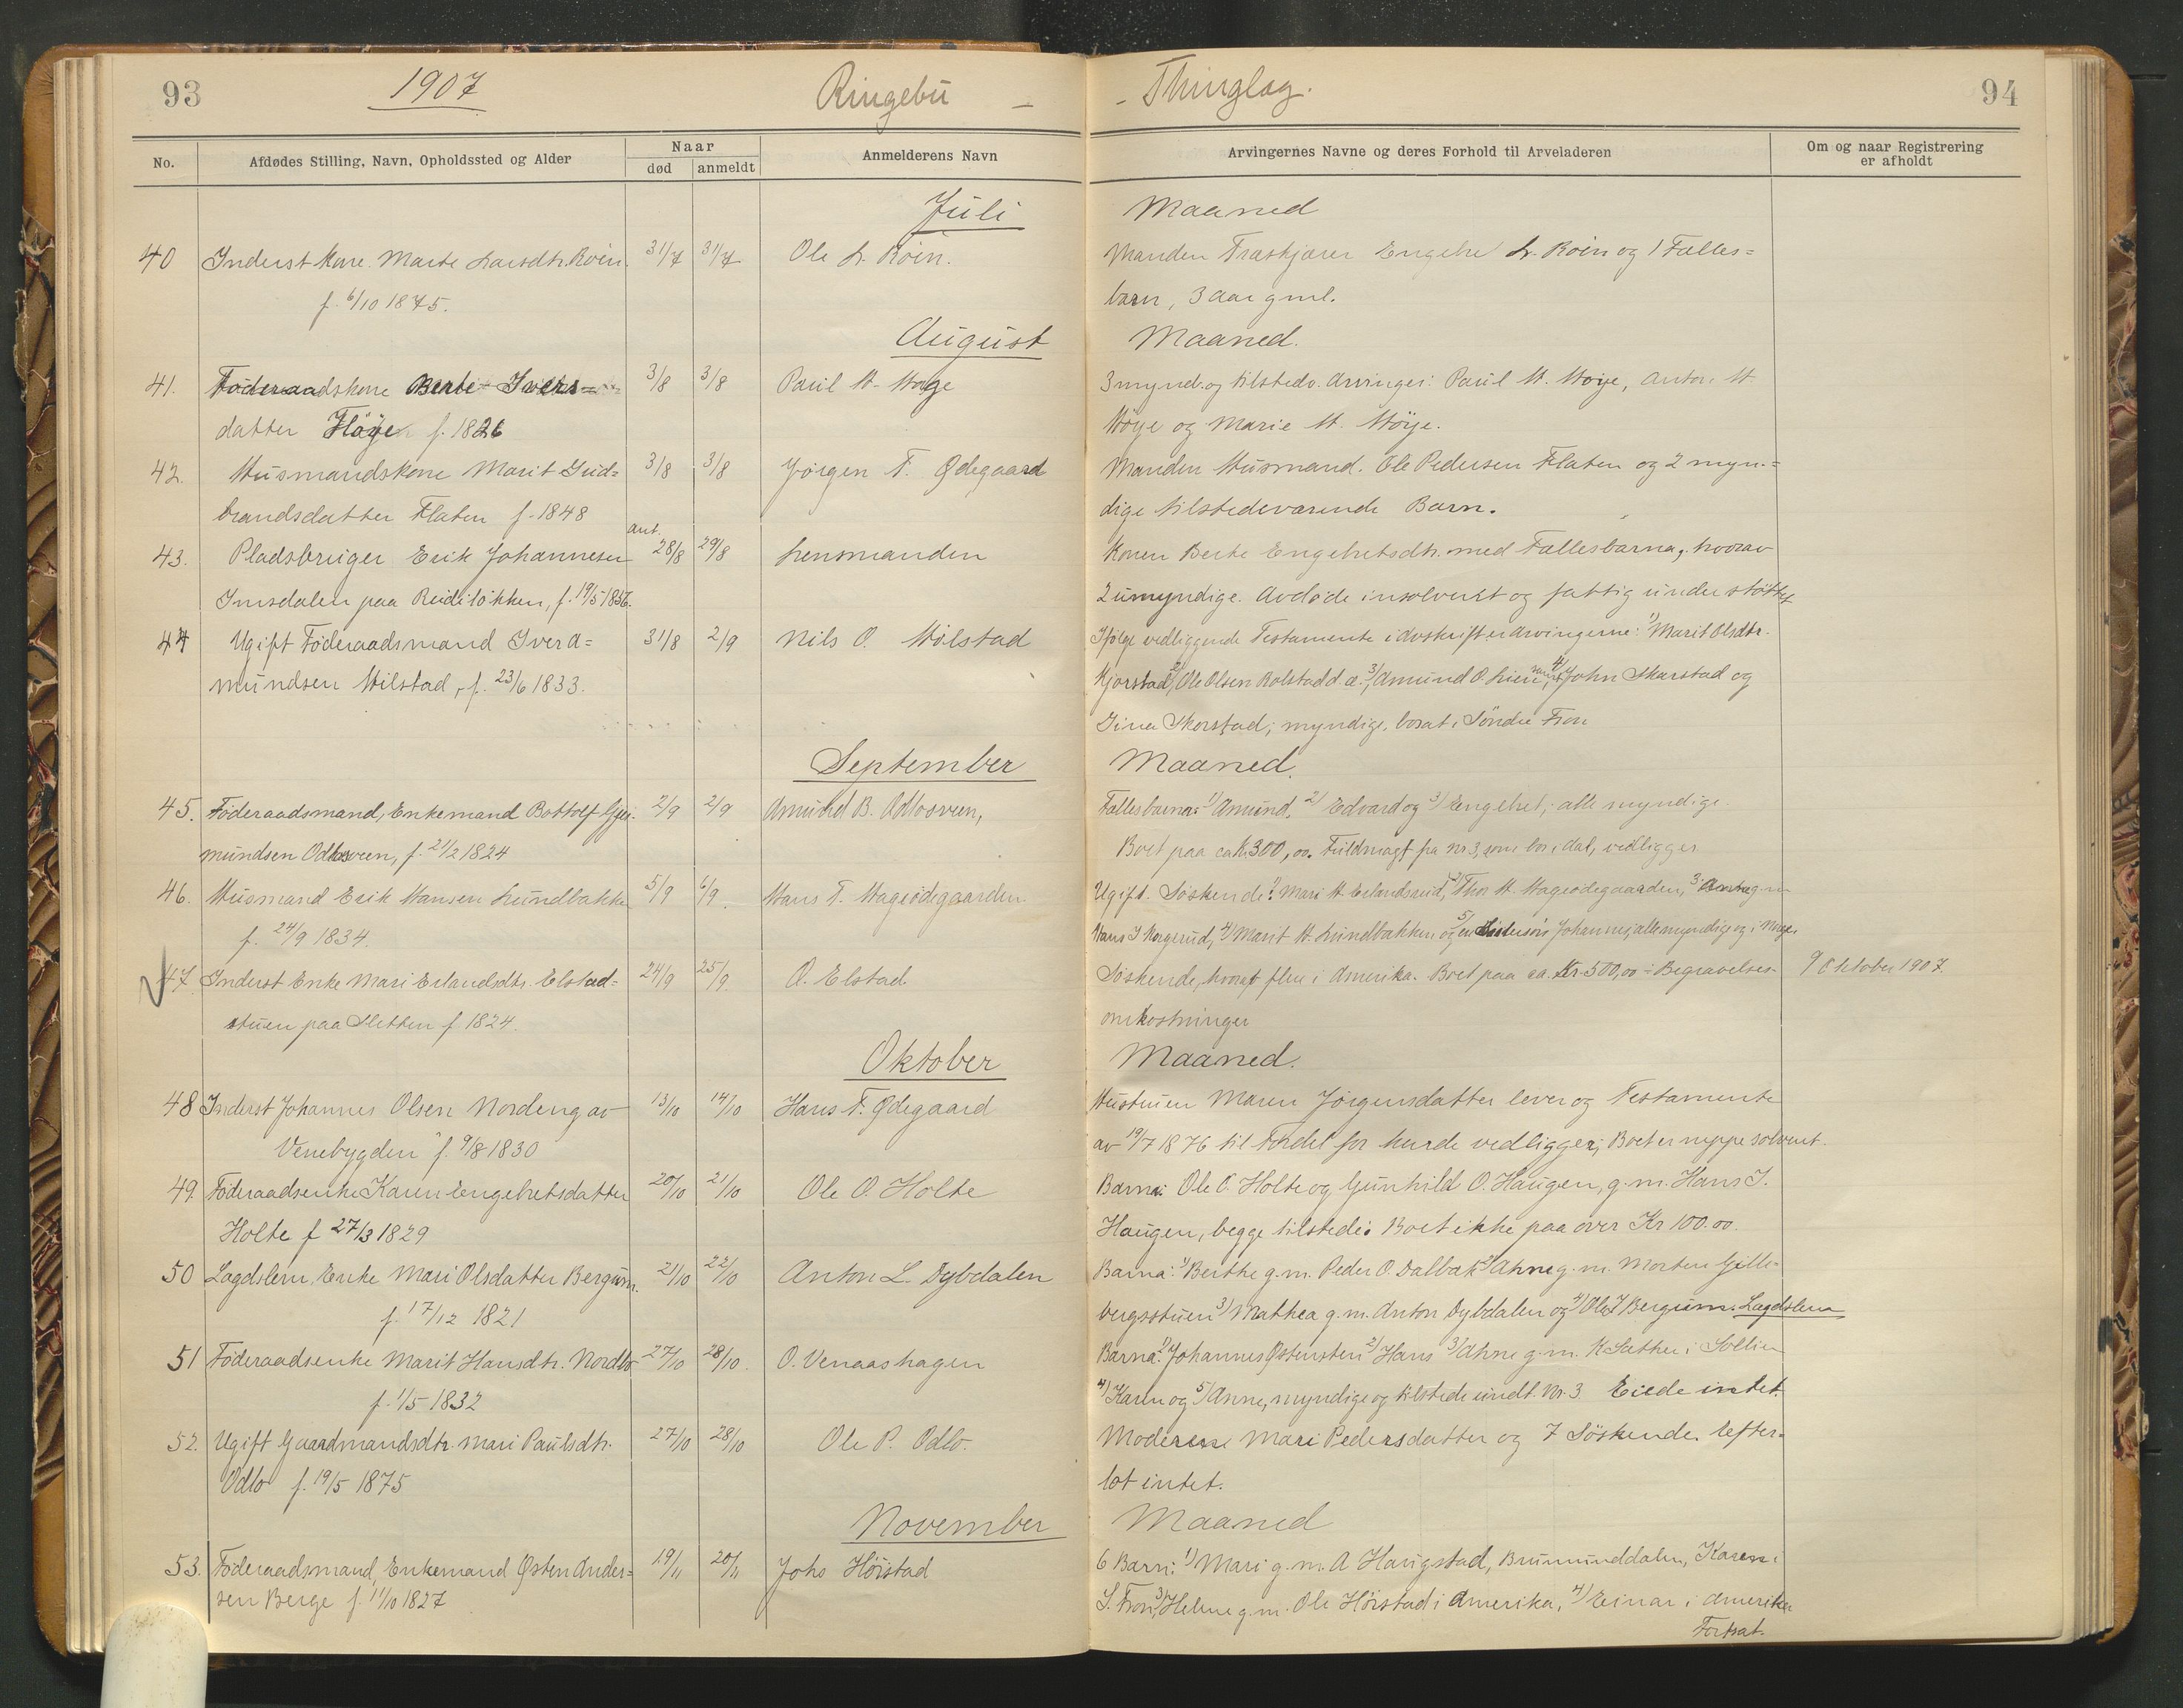 93 1907 Ringebu - - Thinglag. 94
No. Afdødes Stilling, Navn, Opholdssted og Alder Naar død anmeldt Anmelderens Navn Arvingernes Navne og deres Forhold til Arveladeren Om og naar Registrering er afholdt
Juli Maaned
40 Inderst Kone Marte Larsdtr. Roin. 31/7 31/7 Ole L. Roin. Manden Træskjærer Engebr. L. Roin og 1 Fælles=
f. 6/10 1875. barn, 3 aar gml.
August Maaned.
41. Föderaadskone Berte Ivers= 3/8 3/8 Paul H. Hage 3 mynd. og tilstedv. Arvinger: Paul H. Høye, Anton H.
datter Høye f. 1826 Høye og Marie H. Høye.
42. Husmandskone Marit Gud= 3/8 3/8 Jørgen T. Ødegaard Manden Husmand. Ole Pedersen Flaten og 2 myn=
brandsdatter Flaten f. 1848 dige tilstedeværende Barn.
43. Pladsbruger Erik Johannesen ant. 28/8 29/8 Lensmanden Konen Berte Engebretsdtr. med Fællesbarna, hvorav
Imsdalen paa f. 19/5 1836. 2 umyndige. Avdøde insolvent og fattig understøttet
44 Ugift Föderaadsmand Iver A= 31/8 2/9 Nils O. Hilstad Ifølge vedliggende Testamente i Avskrift er Arvingerne: 1) Marit Olsdtr.
mundsen Hilstad, f. 23/6 1833. Kjorstad, 2) Ole Olsen Rolstad d. æ. 3) Amund O. Lien, samt 4) John Skarstad og
Gina Skorstad; myndige, bosat i Söndre Fron
September Maaned.
45. Föderaadsmand, Enkemand Bottolf Gju= 2/9 2/9 Amund B. Odlosveen, Fællesbarna: 1) Amund, 2) Edvard og 3) Engebret; alle myndige.
mundsen Odlosveen, f. 21/2 1824 Boet paa ca Kr 300,00. Fuldmagt fra nr 3, som bor i dal, vedligger
46. Husmand Erik Hansen Lundbakke 5/9 6/9 Hans T. Hageødegaarden. Ugift. Søskende: 1) Mari H. 2) Thor H. Hageødegaarden, 3)
f. 24/9 1834. Hans I Norgerud, 4) Marit H. Lundbakken og 5) en Søstersøn Johannes; alle myndige og i
47. Inderst Enke Mari Erlandsdtr. Elstad= 24/9 25/9 O. Elstad. Söskende, hvoraf flere i Amerika. Boet paa ca. Kr 500,00 ÷ Begravelses= 9 Oktober 1907.
stuen paa Sletten f 1824. omkostninger
Oktober Maaned.
48 Inderst Johannes Olsen Nordeng av 13/10 14/10 Hans T. Ødegaard Hustruen Maren Jørgensdatter lever og Testamente
Venebygden f. 9/8 1830 av 19/7 1876 til Fordel for hende vedligger; Boet er neppe solvent.
49. Föderaadsenke Karen Engebretsdatter 20/10 21/10 Ole O. Holte Barna: Ole O. Holte og Gunhild O. Haugen, g. m. Hans I.
Holte f 27/3 1829 Haugen, begge tilstede. Boet ikke paa over Kr 100.00.
50 Lagdslem. Enke Mari Olsdatter Bergum. 21/10 22/10 Anton L. Dybdalen Barna: 1) Berthe g. m. Peder O. Dalbak 2) Ahne g. m. Morten Gille=
f. 17/12 1821 bergsstuen 3) Mathea g. m. Anton Dybdalen og 4) Ole Bergum. Lagdslem
51 Föderaadsenke Marit Hansdtr. Nordbö 27/10 28/10. O. Venaashagen Barna: 1) Johannes Østensten 2) Hans 3) Ahne g. m. K Sæther i Sollien
f. 1/5 1832 4) Karen og 5) Anne, myndige og tilstede undt. Nr. 3 Eiede intet.
52. Ugift Gaardmandsdtr. Mari Paulsdtr. 27/10 28/10 Ole P. Odlo. Moderen Mari Pedersdatter og 7 Söskende. Efter=
Odlo f. 19/5 1875 lot intet.
November Maaned
53. Föderaadsmand, Enkemand Østen Ander= 19/11 20/11 Johs Höistad 6 Barn: 1) Mari g. m. A Haugstad, Brumunddalen, Karen i
sen Berge f. 11/10 1827 S. Fron, 3) Helene g. m. Ole Höistad i Amerika, 4) Einar i Amerika
Fortsat.